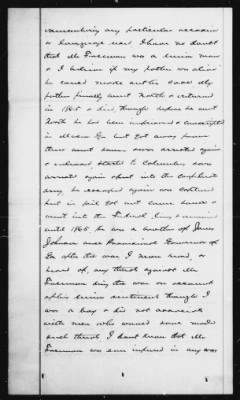 remembering any particular occasion
or language used I have no doubt
that Mr Freeman was a union man
& I believe if my father was alive
he could make further
father finally went North & returned
in 1865 & died though before he went
North he had been imprisoned & conscripted
in Macon Ga but got away from
there went home was arrested again
& started to Columbus
arrested again & put into the Confederate
army he escaped again was captured
put in jail got out came home &
went into the Federal lines & remained
until 1865 he was a brother of James
Johnson Provisional Governor of
Ga after the war I never knew, or
heard of, any threats against Mr
Freeman during the war on account
of his union sentiment though I
was a boy & did not associate
with men who would have made
such threats I dont know that Mr
Freeman was ever injured in any way